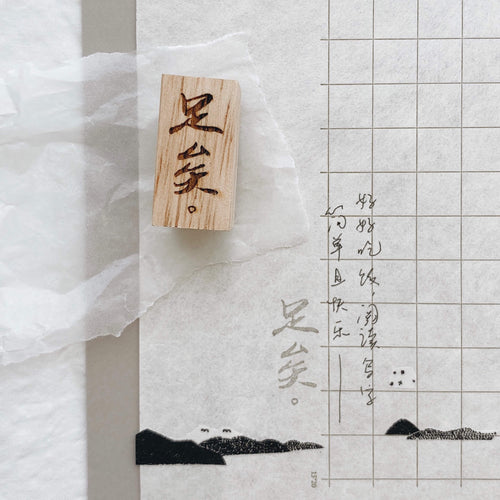 足矣。
好好吃饭，阅读写字
简单且快乐——
足矣。
15*20